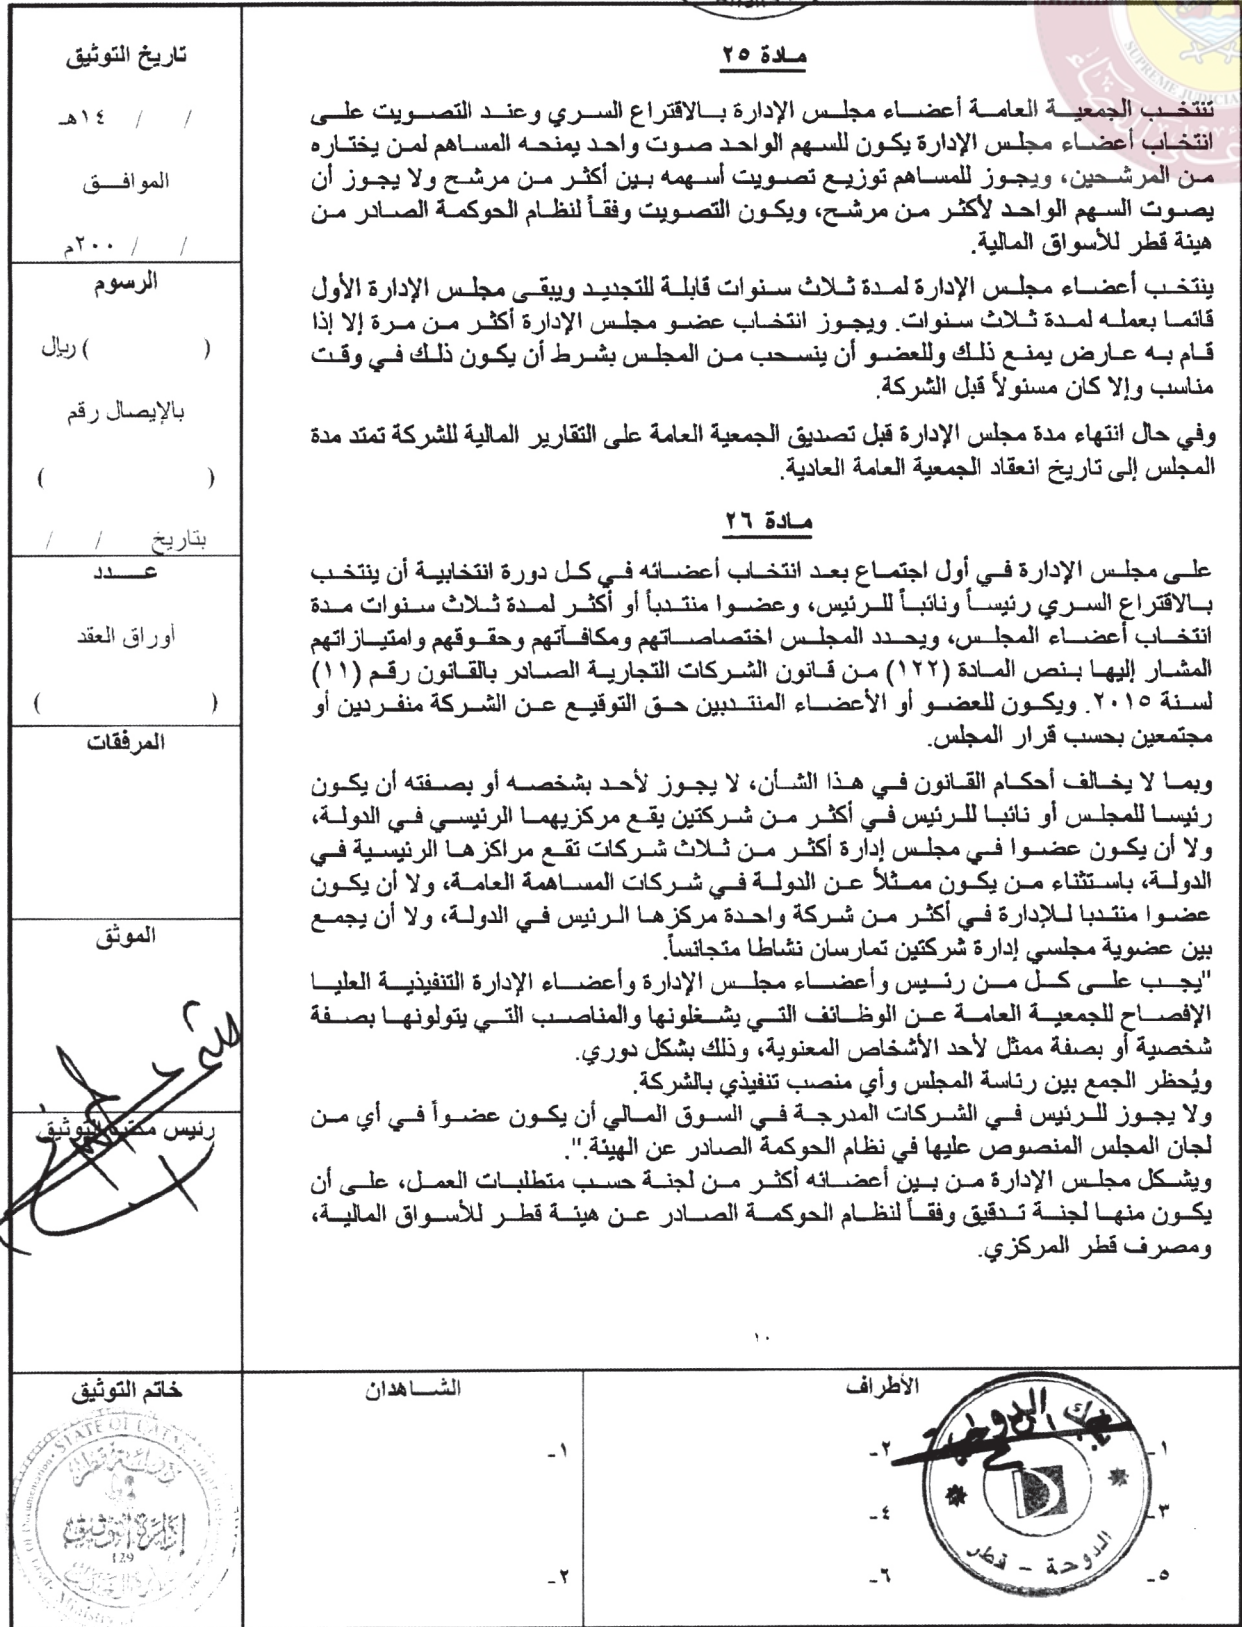 مادة ٢٥
تنتخب الجمعية العامة أعضاء مجلس الإدارة بالاقتراع السري وعند التصويت على
انتخاب أعضاء مجلس الإدارة يكون للسهم الواحد صوت واحد يمنحه المساهم لمن يختاره
من المرشحين، ويجوز للمساهم توزيع تصويت أسهمه بين أكثر من مرشح ولا يجوز أن
يصوت السهم الواحد لأكثر من مرشح، ويكون التصويت وفقاً لنظام الحوكمة الصادر من
هيئة قطر للأسواق المالية.
ينتخب أعضاء مجلس الإدارة لمدة ثلاث سنوات قابلة للتجديد ويبقى مجلس الإدارة الأول
قائما بعمله لمدة ثلاث سنوات. ويجوز انتخاب عضو مجلس الإدارة أكثر من مرة إلا إذا
قام به عارض يمنع ذلك وللعضو أن ينسحب من المجلس بشرط أن يكون ذلك في وقت
مناسب وإلا كان مسئولاً قبل الشركة.
وفي حال انتهاء مدة مجلس الإدارة قبل تصديق الجمعية العامة على التقارير المالية للشركة تمتد مدة
المجلس إلى تاريخ انعقاد الجمعية العامة العادية.
مادة ٢٦
على مجلس الإدارة في أول اجتماع بعد انتخاب أعضائه في كل دورة انتخابية أن ينتخب
بالاقتراع السري رئيساً ونائباً للرئيس، وعضوا منتدباً أو أكثر لمدة ثلاث سنوات مدة
انتخاب أعضاء المجلس، ويحدد المجلس اختصاصاتهم ومكافآتهم وحقوقهم وامتيازاتهم
المشار إليها بنص المادة (١٢٢) من قانون الشركات التجارية الصادر بالقانون رقم (١١)
لسنة ٢٠١٥. ويكون للعضو أو الأعضاء المنتدبين حق التوقيع عن الشركة منفردين أو
مجتمعين بحسب قرار المجلس.
وبما لا يخالف أحكام القانون في هذا الشأن، لا يجوز لأحد بشخصه أو بصفته أن يكون
رئيسا للمجلس أو نائبا للرئيس في أكثر من شركتين يقع مركزيهما الرئيسي في الدولة،
ولا أن يكون عضوا في مجلس إدارة أكثر من ثلاث شركات تقع مراكزها الرئيسية في
الدولة، باستثناء من يكون ممثلاً عن الدولة في شركات المساهمة العامة، ولا أن يكون
عضوا منتدبا للإدارة في أكثر من شركة واحدة مركزها الرئيس في الدولة، ولا أن يجمع
بين عضوية مجلسي إدارة شركتين تمارسان نشاطا متجانساً.
"يجب على كل من رئيس وأعضاء مجلس الإدارة وأعضاء الإدارة التنفيذية العليا
الإفصاح للجمعية العامة عن الوظائف التي يشغلونها والمناصب التي يتولونها بصفة
شخصية أو بصفة ممثل لأحد الأشخاص المعنوية، وذلك بشكل دوري.
ويُحظر الجمع بين رئاسة المجلس وأي منصب تنفيذي بالشركة.
ولا يجوز للرئيس في الشركات المدرجة في السوق المالي أن يكون عضواً في أي من
لجان المجلس المنصوص عليها في نظام الحوكمة الصادر عن الهيئة.".
ويشكل مجلس الإدارة من بين أعضائه أكثر من لجنة حسب متطلبات العمل، على أن
يكون منها لجنة تدقيق وفقاً لنظام الحوكمة الصادر عن هيئة قطر للأسواق المالية،
ومصرف قطر المركزي.
١٠
تاريخ التوثيق
/ / ١٤هـ
الموافق
/ / ٢٠٠م
الرسوم
( ) ريال
بالإيصال رقم
( )
بتاريخ / /
عدد
أوراق العقد
( )
المرفقات
الموثق
رئيس مكتب التوثيق
الأطراف
١- ٢-
٣- ٤-
٥- ٦-
بنك الدوحة
الدوحة - قطر
الشاهدان
١-
٢-
خاتم التوثيق
STATE OF QATAR
دولة قطر
إدارة التوثيق
129
SUPREME JUDICIA